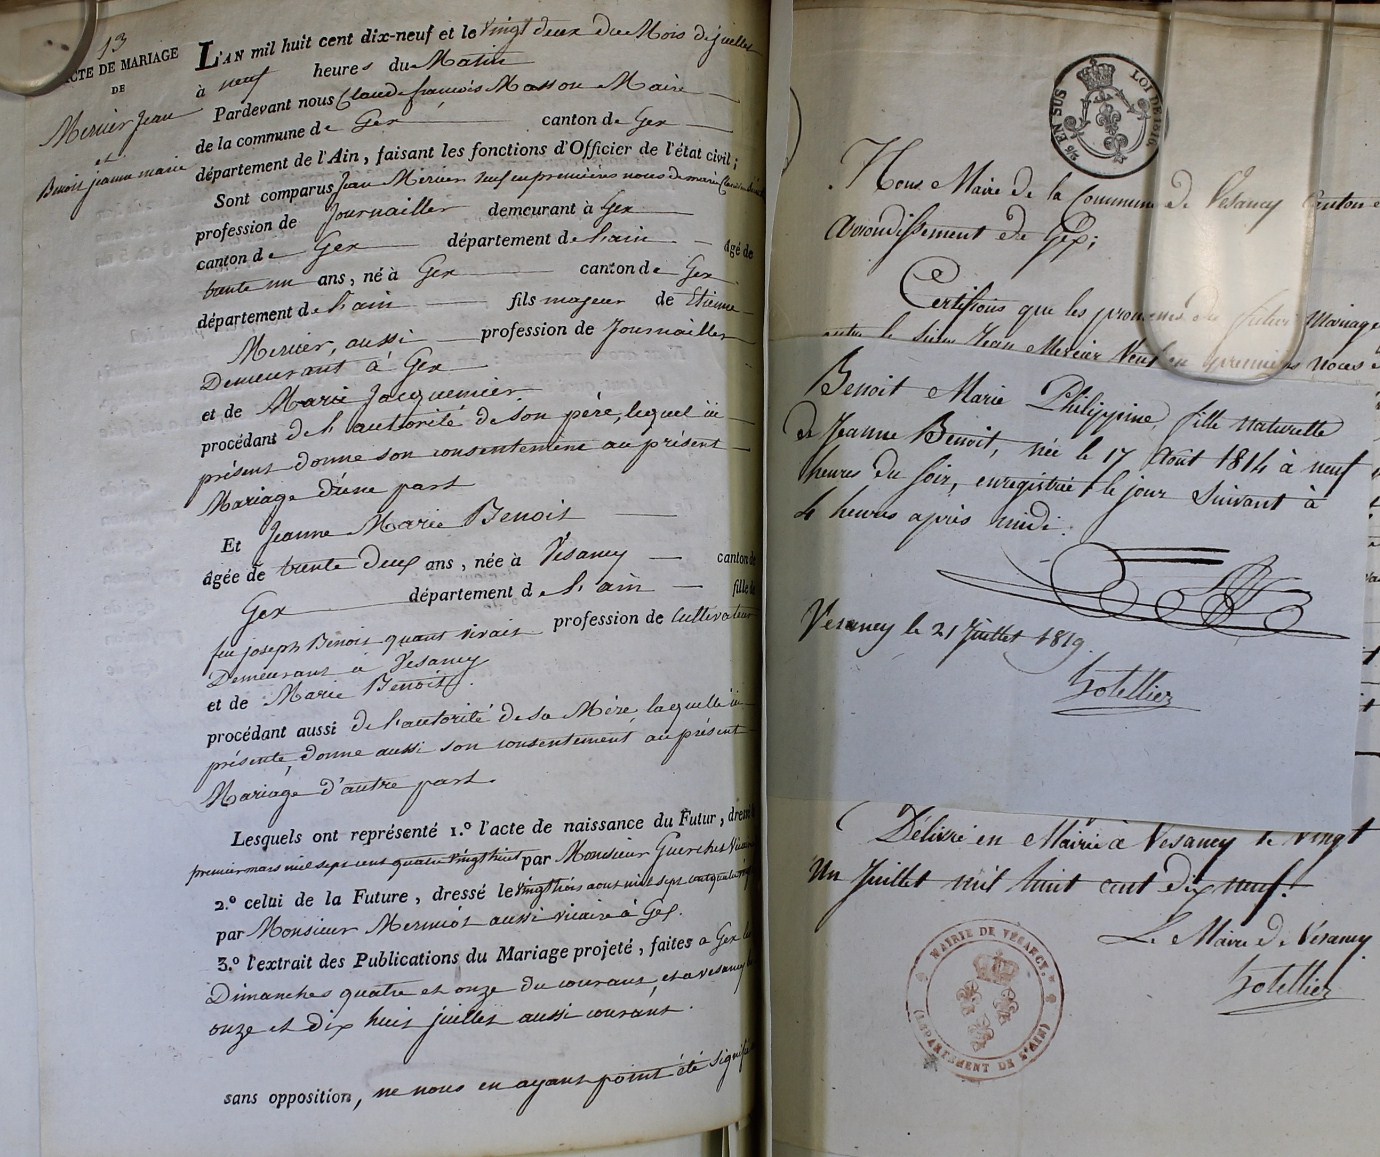 13
ACTE DE MARIAGE
DE
Mercier Jean
et
Benoit jeanne marie
L'AN mil huit cent dix-neuf et le vingt deux du Mois de juillet
à neuf heures du Matin
Pardevant nous Claude françois Masson Maire
de la commune de Gex canton de Gex
département de l'Ain, faisant les fonctions d'Officier de l'état civil;
Sont comparus Jean Mercier veuf en premières noces de marie
profession de Journailler demeurant à Gex
canton de Gex département de L'ain âgé de
trente un ans, né à Gex canton de Gex
département de L'ain fils majeur de Etienne
Mercier, aussi profession de Journailler
Demeurant à Gex
et de Marie Jacquemier
procédant de L'autorité de son père, lequel ici
présent donne son consentement au présent
Mariage d'une part
Et Jeanne Marie Benoit
âgée de trente deux ans, née à Vésancy canton de
Gex département de L'ain fille de
feu joseph Benoit quant vivait profession de Cultivateur
Demeurant à Vesancy
et de Marie Benoit.
procédant aussi de L'autorité de sa Mère laquelle ici
présente, donne aussi son consentement au présent
Mariage d'autre part.
Lesquels ont représenté 1.º l'acte de naissance du Futur, dressé le
premier mars mil sept cent quatre vingt huit par Monsieur Guerchet Vicaire
2.º celui de la Future, dressé le vingt trois aout mil sept cent quatre
par Monsieur Mermiot aussi vicaire à Gex.
3.º l'extrait des Publications du Mariage projeté, faites a Gex les
Dimanches quatre et onze du courant, et a Vesancy
onze et dix huit juillet aussi courant.
sans opposition, ne nous en ayant point été signifié
25 EN SUS
LOI DE 1816
Nous Maire de la Commune de Vesancy Canton et
Arrondissement de Gex;
Certifions que les promesses du futur Mariage
entre le Sieur Jean Mercier Veuf en premières noces
Benoit Marie Philippine, fille naturelle
de Jeanne Benoit, née le 17 Août 1814 à neuf
heures du soir, enregistrée le jour suivant à
4 heures après midi.
Vesancy le 21 Juillet 1819.
Hotellier
Délivré en Mairie à Vesancy le vingt
Un Juillet mil huit cent dix neuf.
Le Maire de Vésancy
Hotellier
MAIRIE DE VÉSANCY.
(DÉPARTEMENT DE L'AIN)